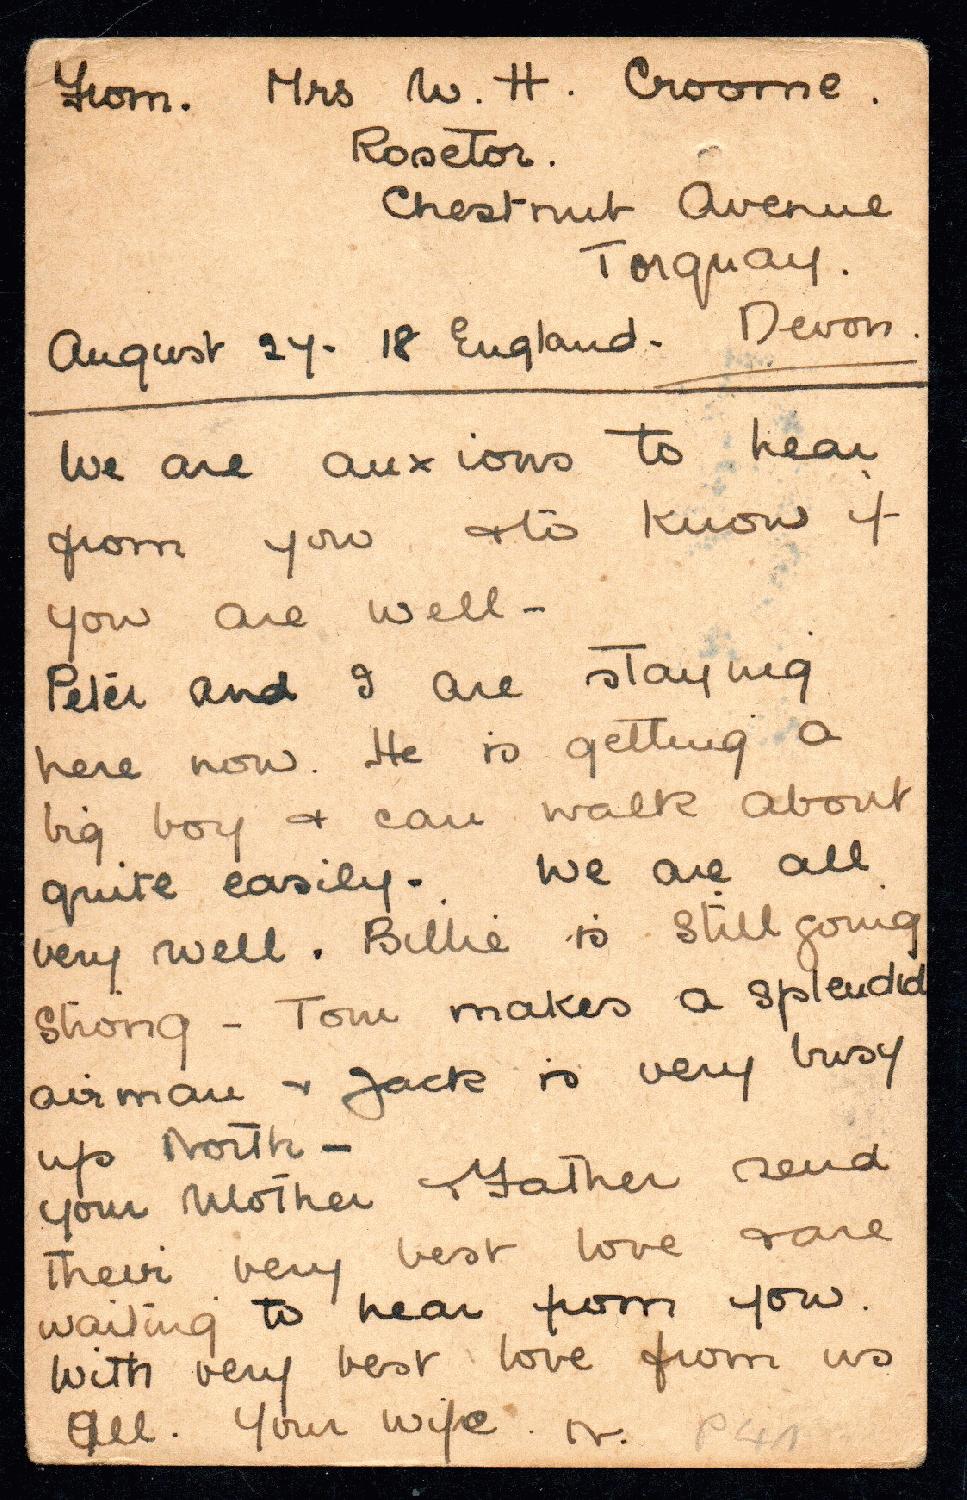 From. Mrs W. H. Croome.
Rosetor.
Chestnut Avenue
Torquay.
August 27. 18 England. Devon.
We are anxious to hear
from you & to know if
you are well -
Peter and I are staying
here now. He is getting a
big boy & can walk about
quite easily. We are all
very well. Billie is still going
strong - Tom makes a splendid
airman & Jack is very busy
up North -
your Mother & Father send
their very best love & are
waiting to hear from you.
With very best love from us
all. Your wife. N. P41